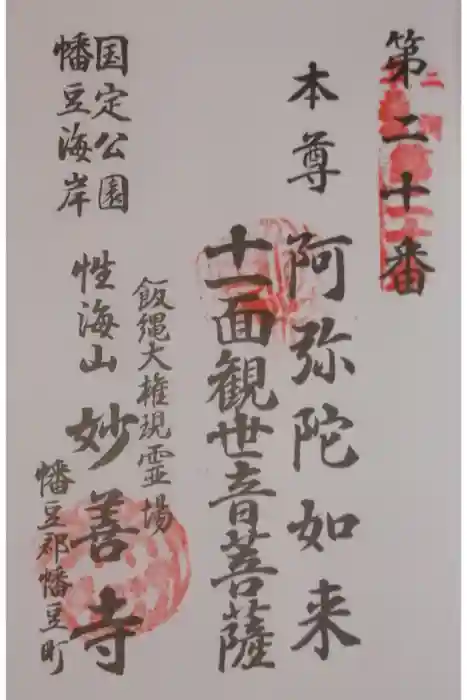 第二十番
本尊 阿弥陀如来
十一面観世音菩薩
飯縄大権現霊場
国定公園
幡豆海岸
性海山 妙善寺
幡豆郡幡豆町